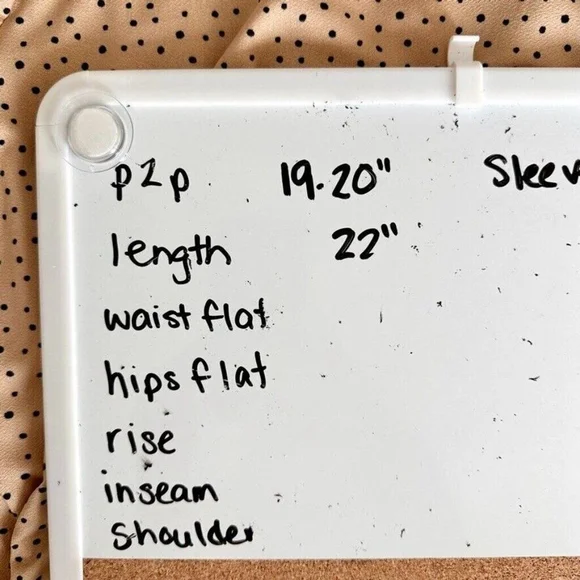 p2p 19.20" Sleev
length 22"
waist flat
hips flat
rise
inseam
shoulder